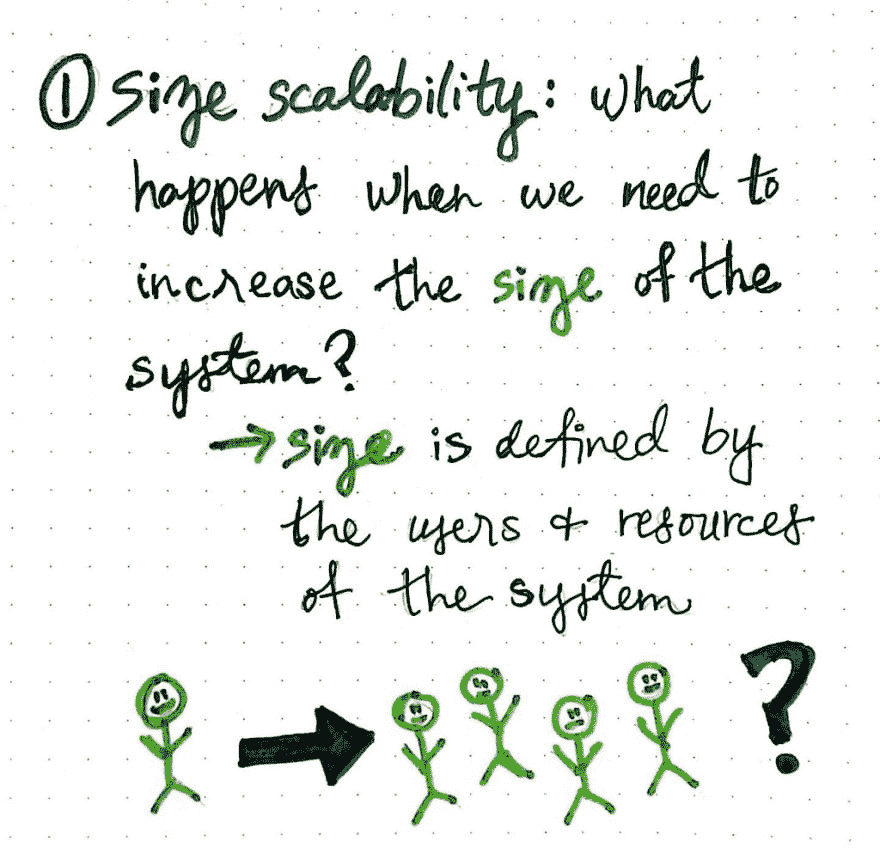 ① Size scalability: what
happens when we need to
increase the size of the
system?
→ size is defined by
the users & resources
of the system
?